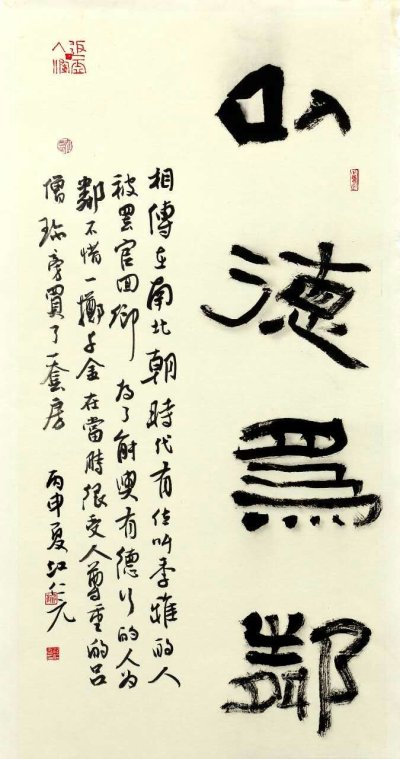 以德爲鄰
相傳在南北朝時代有位叫李雅的人
被罢官回鄉为了能與有德行的人为
鄰不惜一擲千金在當時很受人尊重的吕
僧珍旁買了一套房 丙申夏江